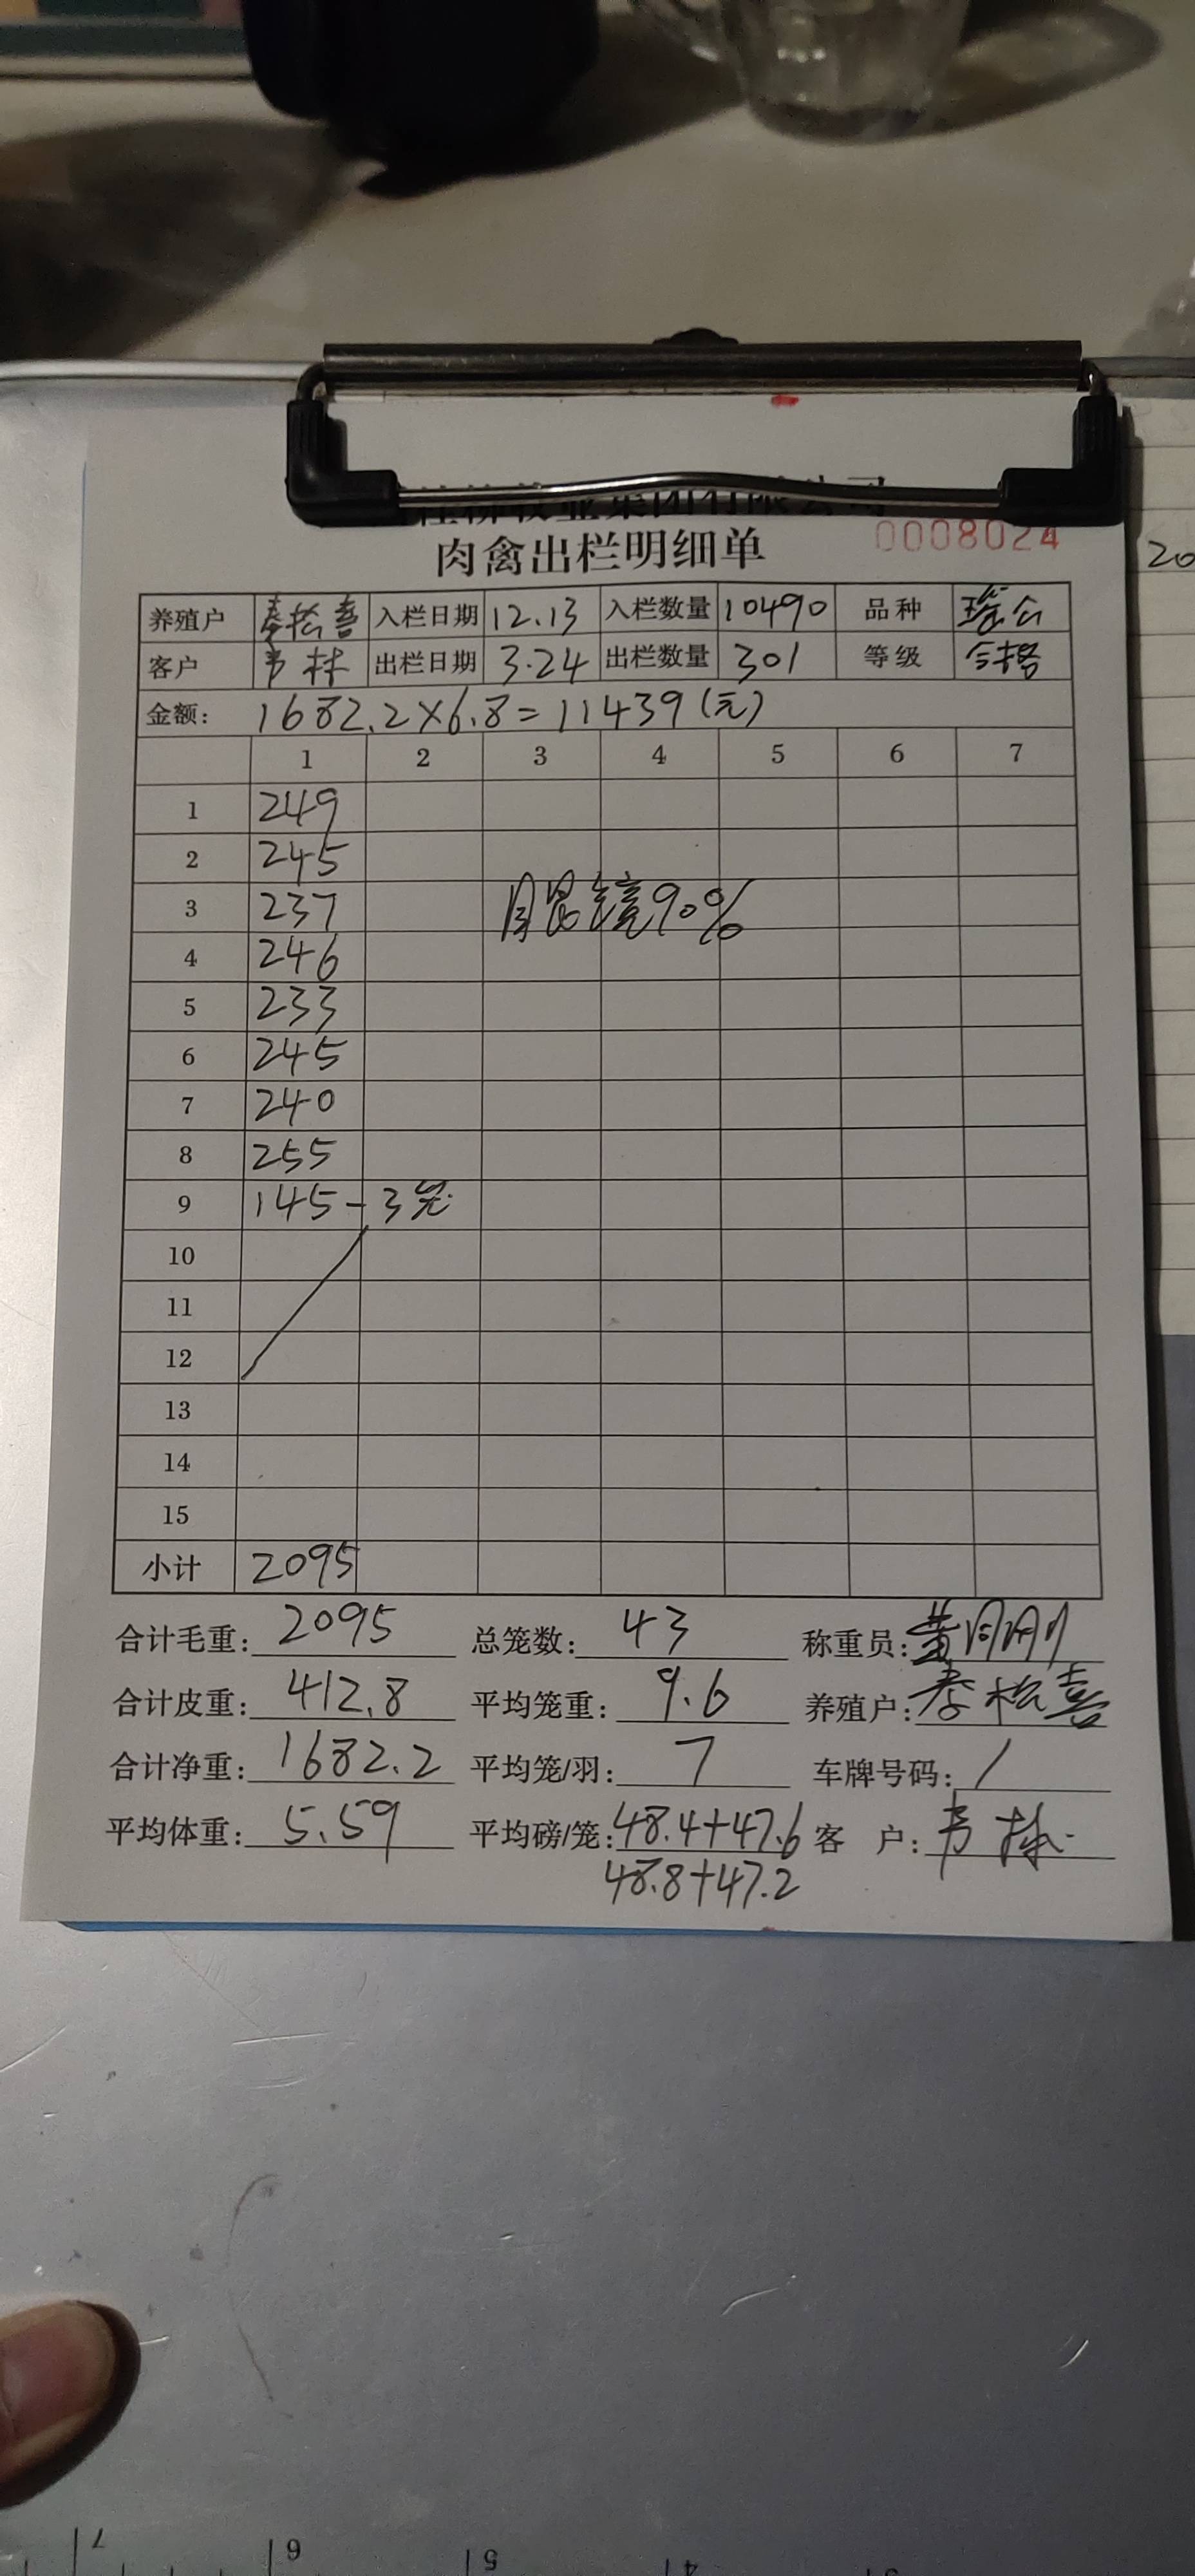 桂柳牧业集团有限公司
肉禽出栏明细单 0008024
养殖户 秦松喜 入栏日期 12.13 入栏数量 10490 品种
客户 韦林 出栏日期 3.24 出栏数量 301 等级 合格
金额: 1682.2×6.8=11439(元)
1 2 3 4 5 6 7
1 249
2 245
3 237 90%
4 246
5 233
6 245
7 240
8 255
9 145-3笼
10
11
12
13
14
15
小计 2095
合计毛重: 2095 总笼数: 43 称重员:
合计皮重: 412.8 平均笼重: 9.6 养殖户: 秦松喜
合计净重: 1682.2 平均笼/羽: 7 车牌号码: /
平均体重: 5.59 平均磅/笼: 48.4+47.6 客 户: 韦林
48.8+47.2
20
7 6 5 4